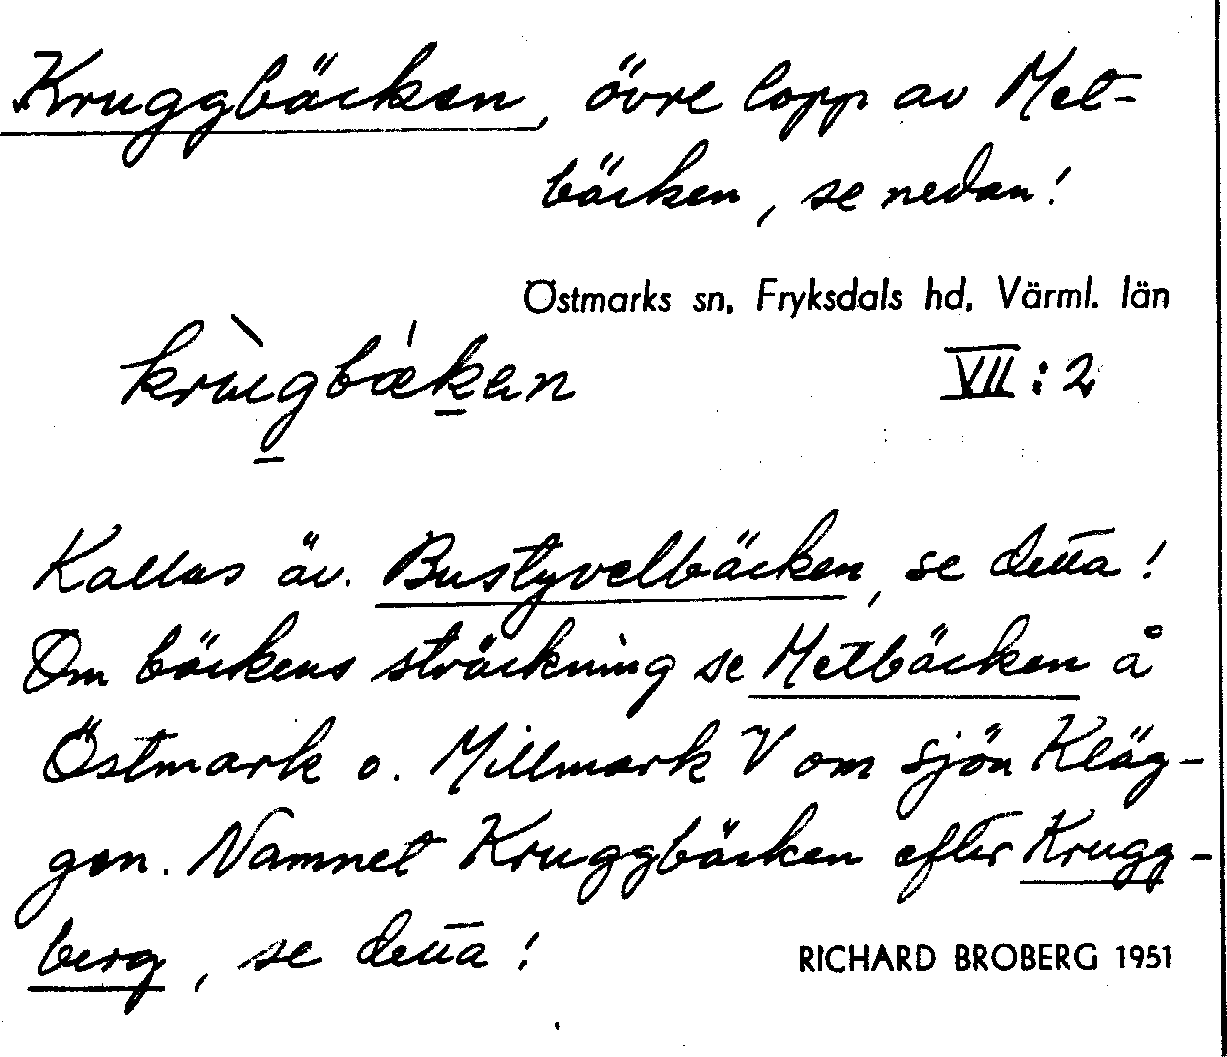 Kruggbäcken, övre lopp av Met-
bäcken, se nedan!
Östmarks sn, Fryksdals hd, Värml. län
krùgbǽkan
VII:2
Kallas äv. Bustyvelbäcken, se detta!
Om bäckens sträckning se Metbäcken å
Östmark o. Millmark V om sjön Kläg-
gen. Namnet Kruggbäcken efter Krugg-
berg, se detta!
RICHARD BROBERG 1951